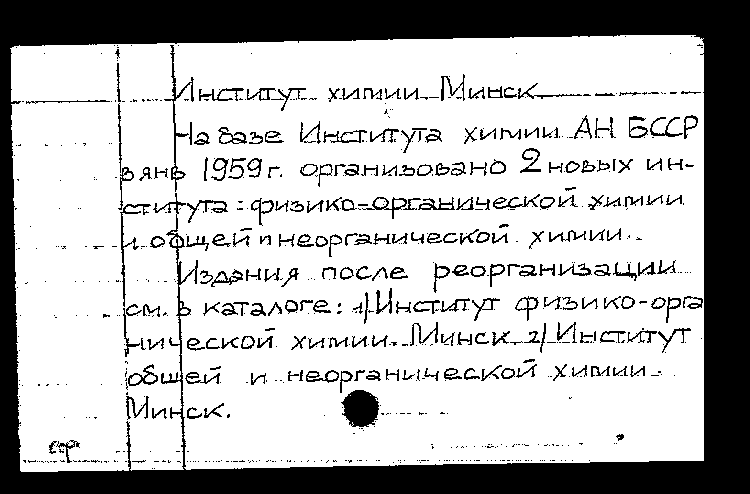 Институт химии. Минск.
На базе Института химии АН БССР
в янв 1959г. организовано 2 новых ин-
ститута: физико-органической химии
и общей и неорганической химии.
Издания после реорганизации
см. в каталоге: 1) Институт физико-орга
нической химии. Минск. 2) Институт
общей и неорганической химии.
Минск.